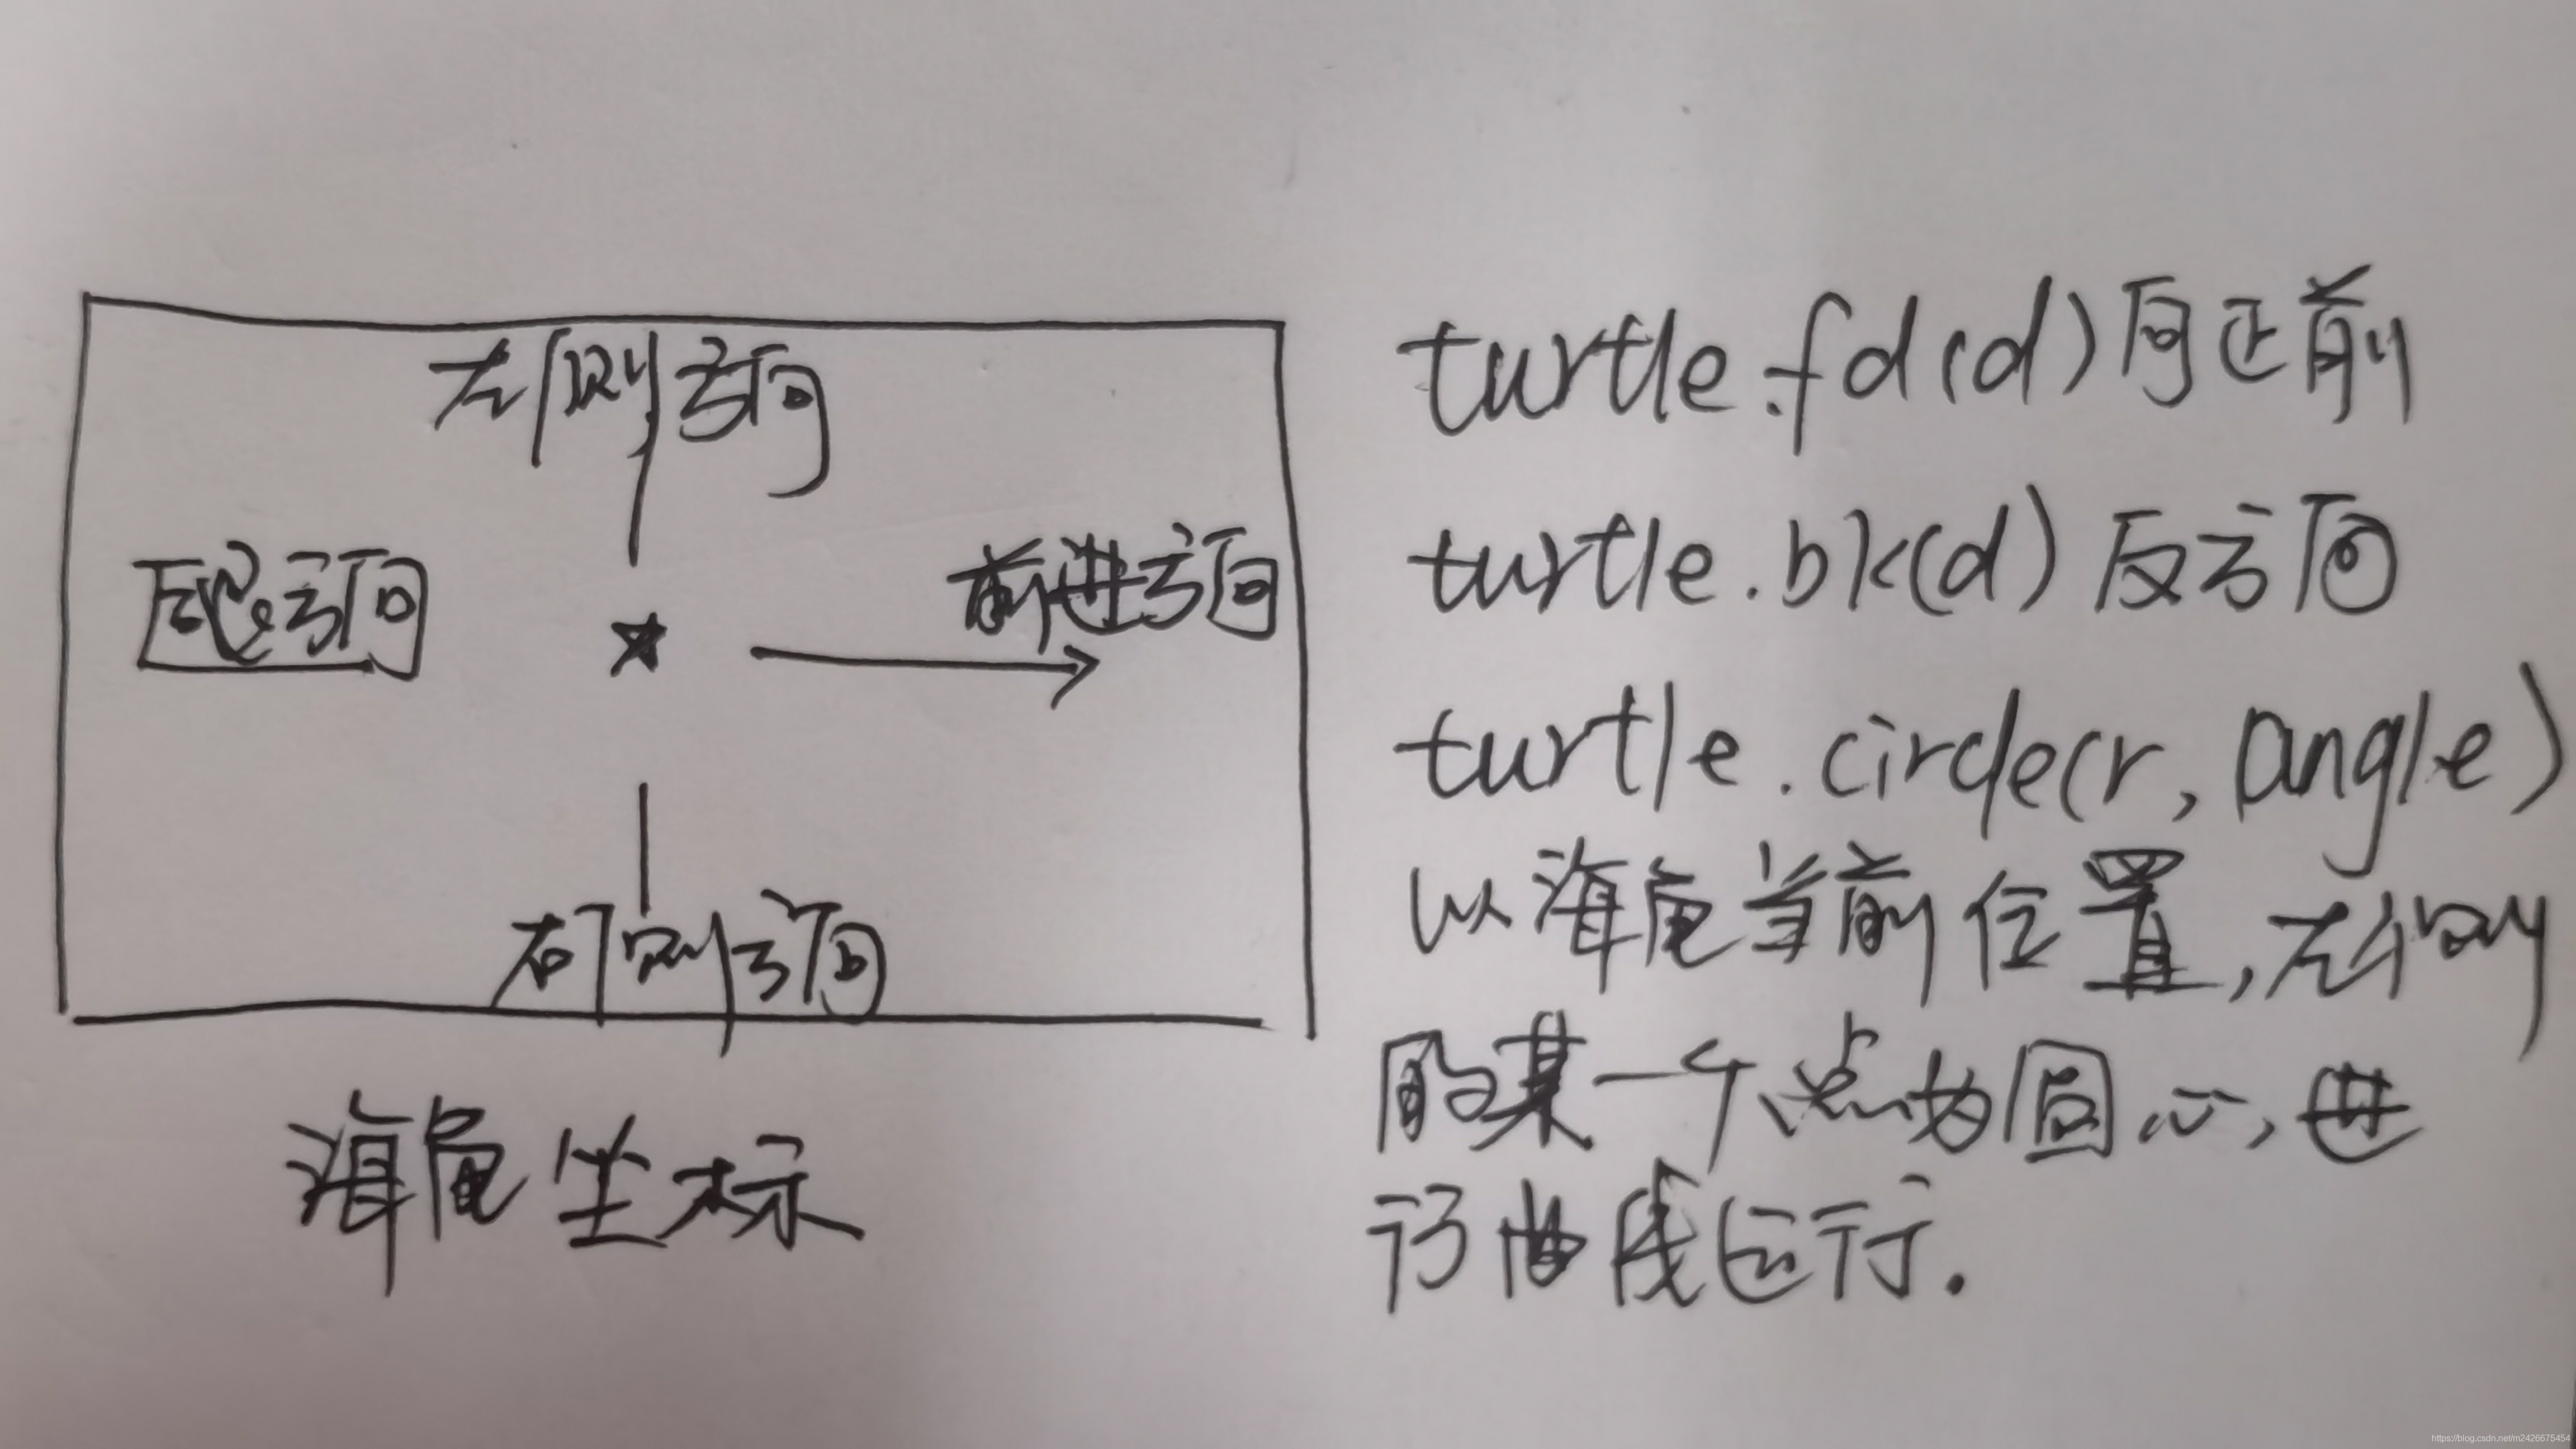 左侧方向
后退方向
前进方向
右侧方向
海龟坐标
turtle.fd(d)向正前
turtle.bk(d)反方向
turtle.circle(r,angle)
以海龟当前位置,左侧
的某一个点为圆心,进
行曲线运行.
https://blog.csdn.net/m2426675454